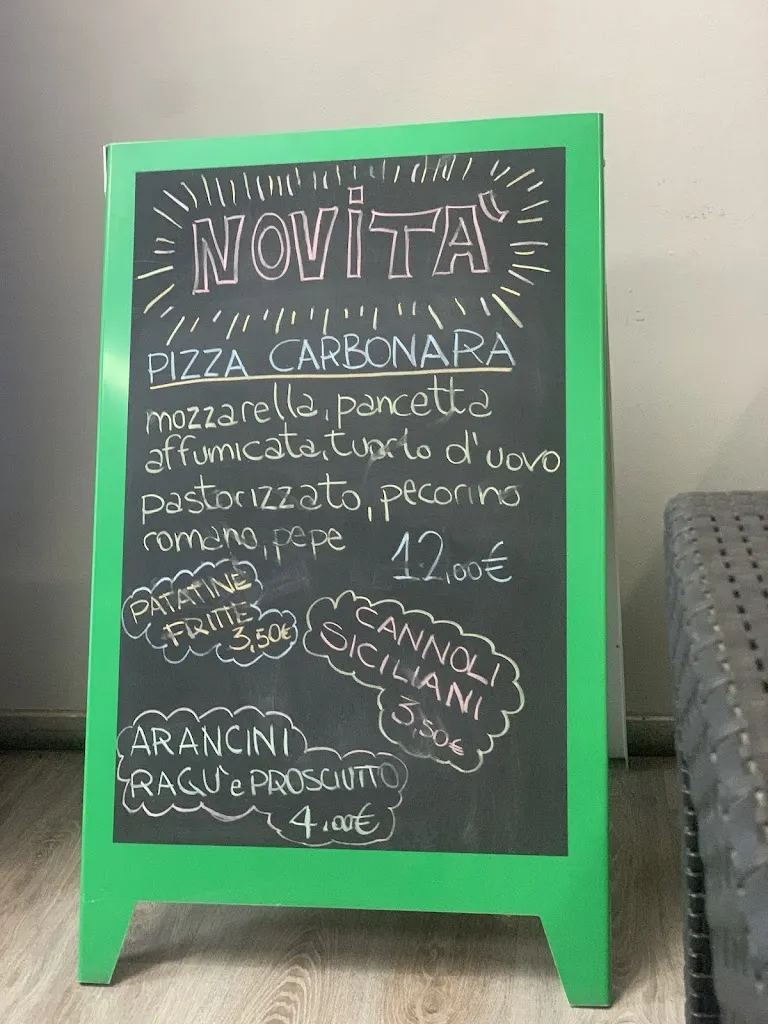 NOVITÀ
PIZZA CARBONARA
mozzarella, pancetta
affumicata, tuorlo d'uovo
pastorizzato, pecorino
romano, pepe 12,00€
PATATINE
FRITTE
3,50€
CANNOLI
SICILIANI
3,50€
ARANCINI
RAGU' e PROSCIUTTO
4,00€